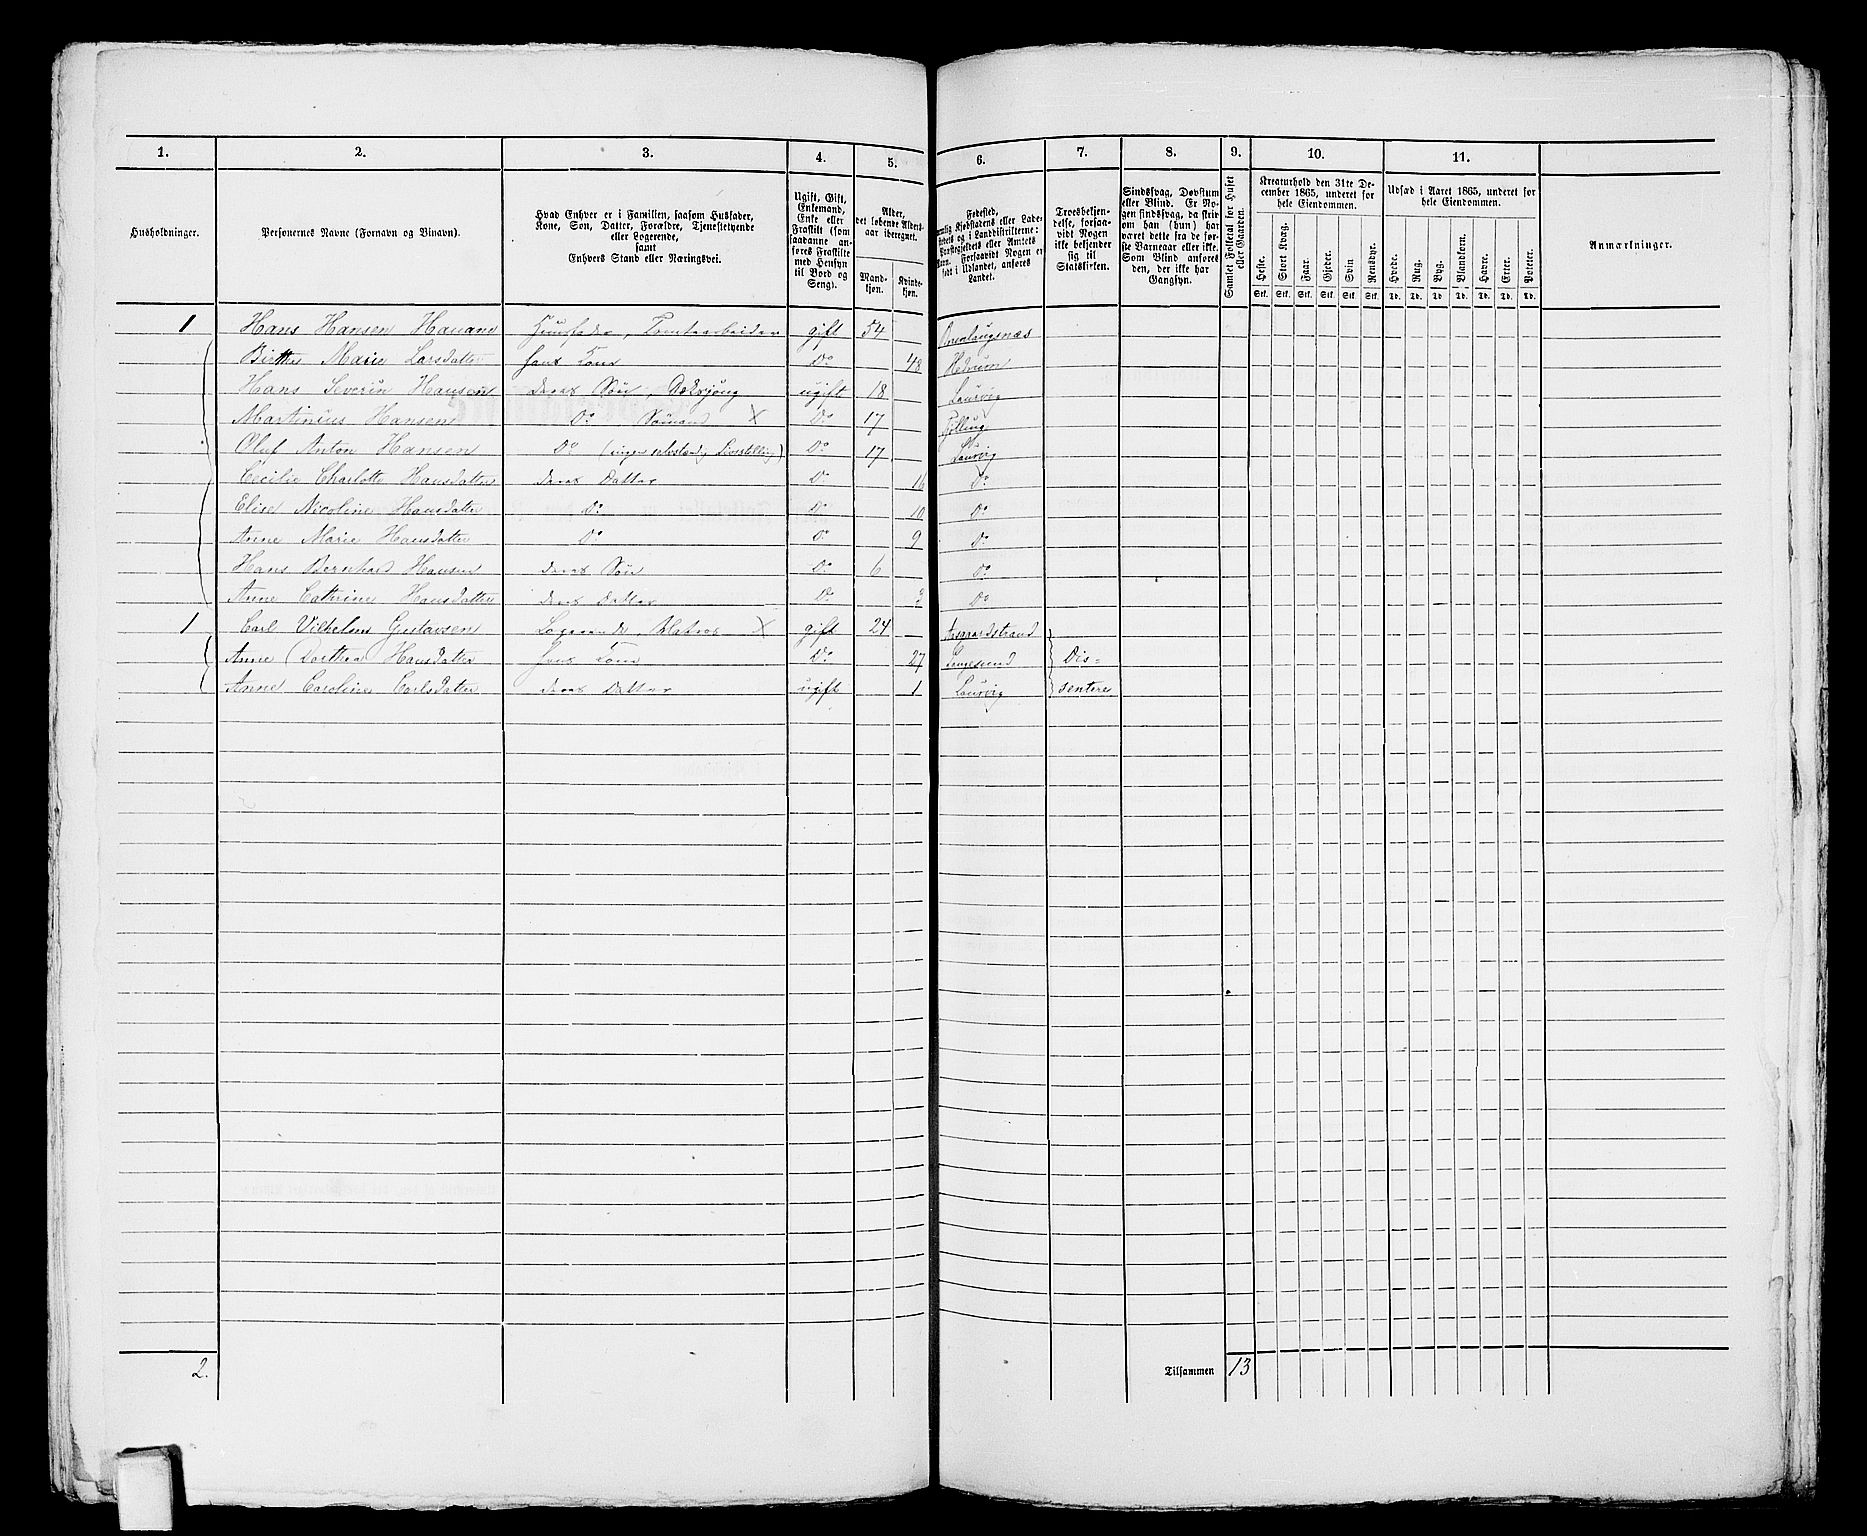 1. 2. 3. 4. 5. 6. 7. 8. 9. 10. 11.
Husholdninger.
Personernes Navne (Fornavn og Binavn).
Hvad Enhver er i Familien, saasom Husfader,
Kone, Søn, Datter, Forældre, Tjenestetyende
eller Logerende,
samt
Enhvers Stand eller Næringsvei.
Ugift, Gift,
Enkemand,
Enke eller
Fraskilt (som
saadanne an-
føres Fraskilte
med Hensyn
til Bord og
Seng).
Alder,
det løbende Alders-
aar iberegnet.
Mand-
kjøn.
Kvinde-
kjøn.
Fødested,
nemlig Kjøbstadens eller Lade-
stedets og i Landdistrikterne:
Præstegjeldets eller Amtets
Navn. Forsaavidt Nogen er
født i Udlandet, anføres
Landet.
Troesbekjen-
delse, forsaa-
vidt Nogen
ikke bekjender
sig til
Statskirken.
Sindssvag, Døvstum
eller Blind. Er No-
gen sindssvag, da skrives
om han (hun) har
været dette fra de før-
ste Barneaar eller ikke.
Som Blind anføres
den, der ikke har
Gangsyn.
Samlet Folketal for Huset
eller Gaarden.
Kreaturhold den 31te De-
cember 1865, underet for
hele Eiendommen.
Heste. Stort Kvæg. Faar. Gjeder. Svin Rensdyr.
Stk. Stk. Stk. Stk. Stk. Stk.
Udsæd i Aaret 1865, underet for
hele Eiendommen.
Hvede. Rug. Byg. Blandkorn. Havre. Erter. Poteter.
Td. Td. Td. Td. Td. Td. Td.
Anmærkninger.
1 Hans Hansen Husfader, Tomtearbeider gift 54
Birthe Marie Larsdatter hans Kone Do 48 Hedrum
Hans Severin Hansen deres Søn, ugift 18 Laurvig
Martinius Hansen Do Sømand X Do 17 Tjølling
Oluf Anton Hansen Do (ingen selvstændig Livsstilling) Do 17 Laurvig
Cecilie Charlotte Hansdatter deres Datter Do 16 Do
Elise Nicoline Hansdatter Do Do 10 Do
Anne Marie Hansdatter Do Do 9 Do
Hans Bernhard Hansen deres Søn Do 6 Do
Anne Cathrine Hansdatter deres Datter Do 3 Do
1 Carl Vilhelm Gustavsen Logerende, Matros X gift 24 Aasgaardstrand
Anne Dorthea Hansdatter hans Kone Do 27 Langesund Dis-
Anne Caroline Carlsdatter deres Datter ugift 1 Laurvig sentere
2. Tilsammen 13